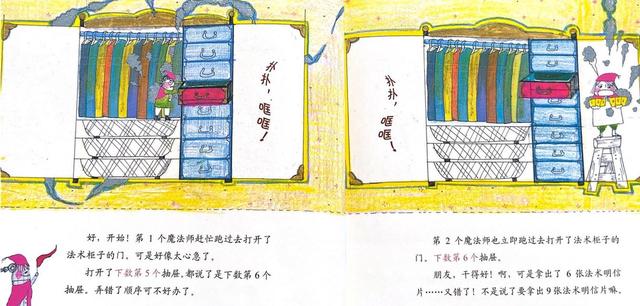 扑扑，哐哐！
扑扑，哐哐！
好，开始！第 1 个魔法师赶忙跑过去打开了
法术柜子的门，可是好像太心急了。
打开了下数第5个抽屉，都说了是下数第6个
抽屉。弄错了顺序可不好办了。
第 2 个魔法师也立即跑过去打开了法术柜子的
门。下数第6个抽屉。
朋友，干得好！啊，可是拿出了 6 张法术明信
片……又错了！不是说了要拿出9张法术明信片嘛。